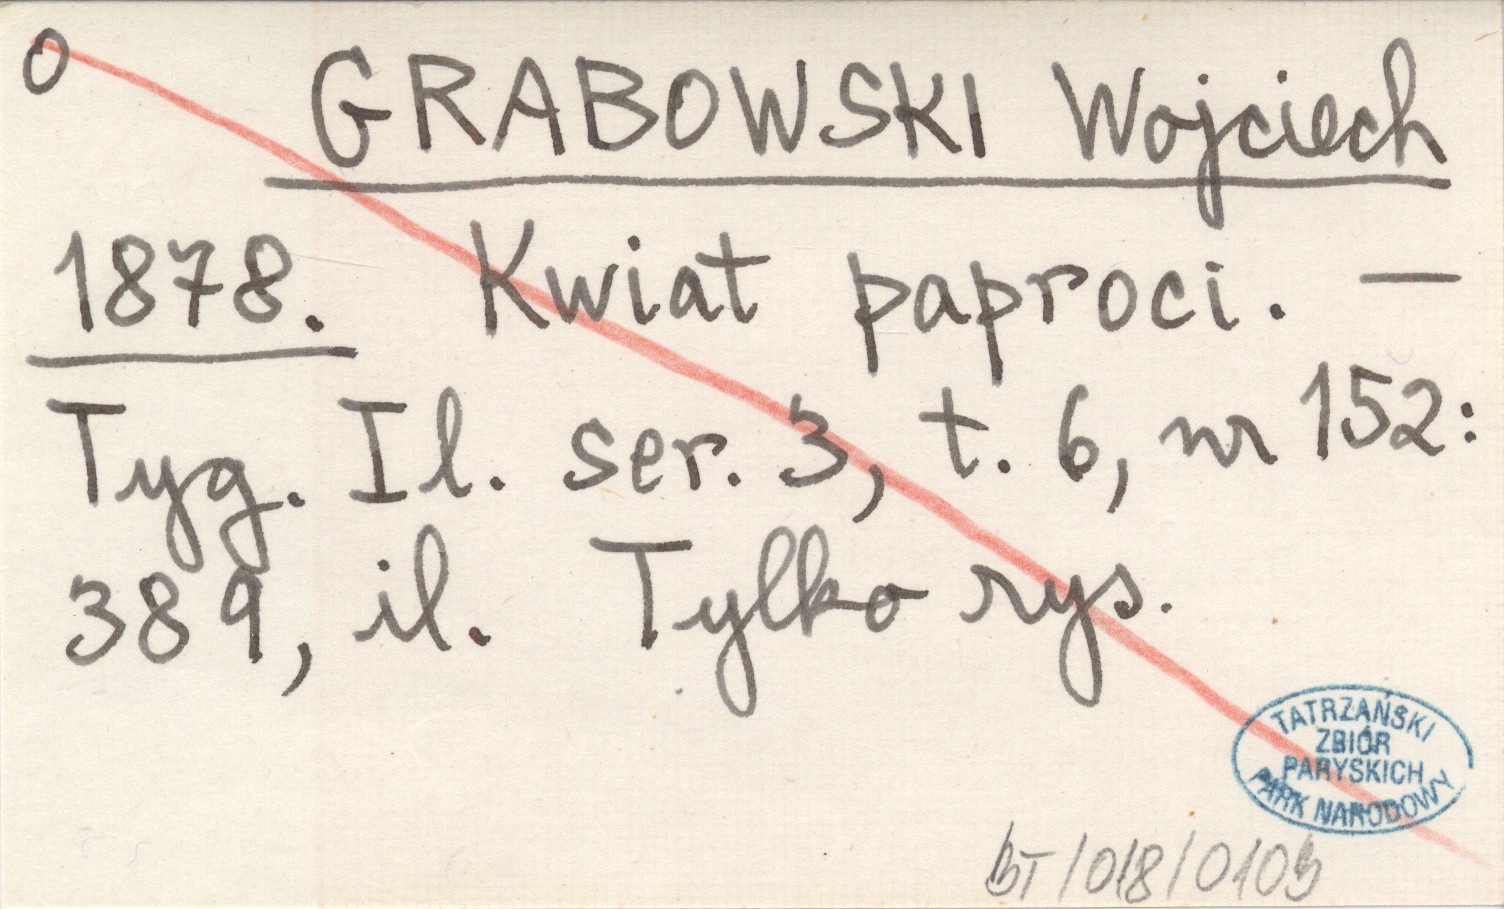 O
GRABOWSKI Wojciech
1878. Kwiat paproci. —
Tyg. Il. ser. 3, t. 6, nr 152:
389, il. Tylko rys.
TATRZAŃSKI
ZBIÓR
PARYSKICH
PARK NARODOWY